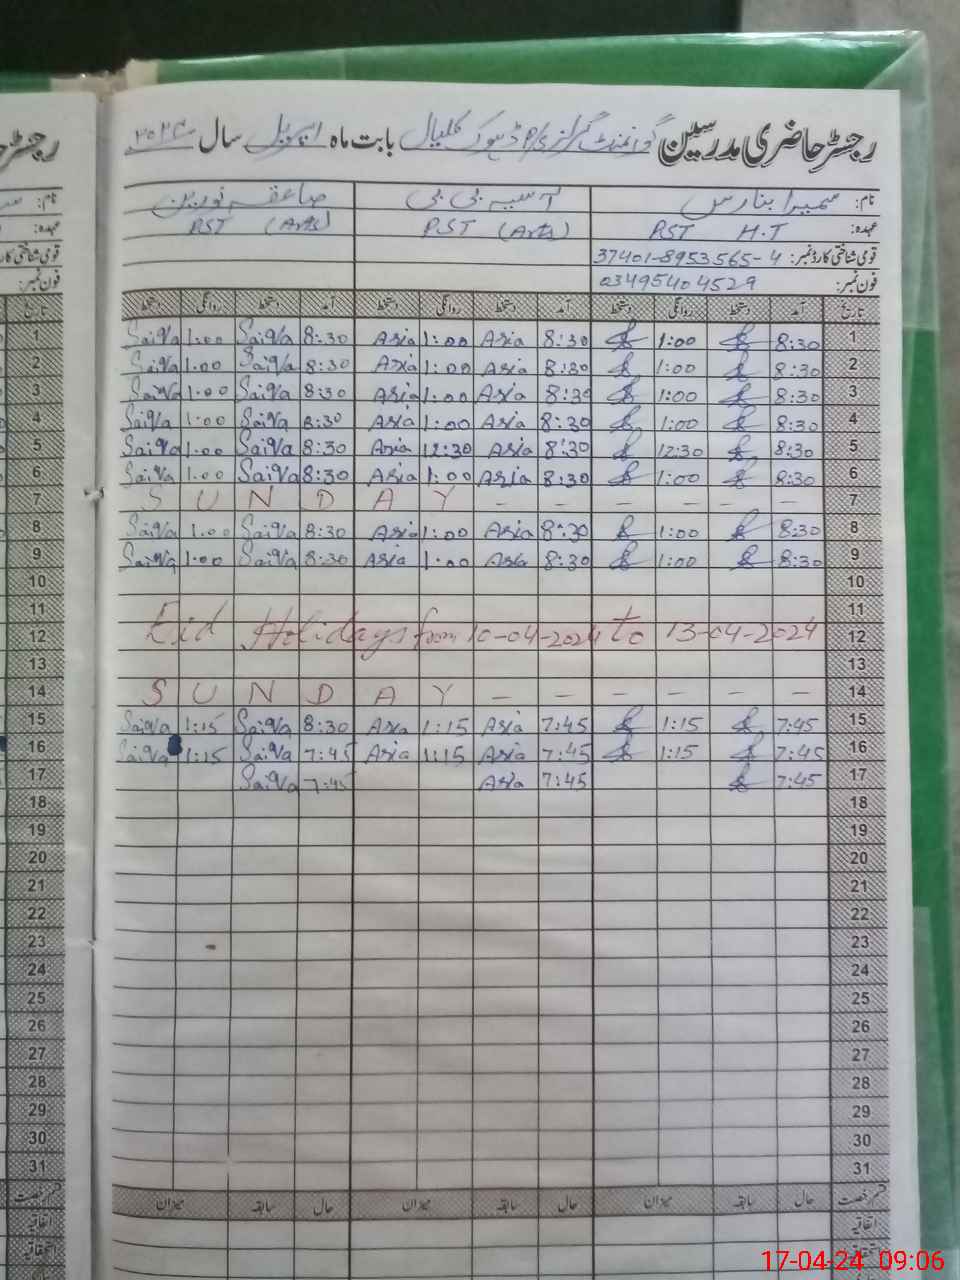 رجسٹر حاضری مدرسین گورنمنٹ گرلز P/S ڈہوک کلیال بابت ماہ اپریل سال ۲۰۲۴
نام: سمیرا بنارس آسیہ بی بی صاعقہ نورین
عہدہ: PST H.T PST (Arts) PST (Arts)
قومی شناختی کارڈ نمبر: 37401-8953565-4
فون نمبر: 03495404529
تاریخ آمد دستخط روانگی دستخط آمد دستخط روانگی دستخط آمد دستخط روانگی دستخط
Saiqa 1:00 Saiqa 8:30 Asia 1:00 Asia 8:30 1:00 8:30 1
Saiqa 1:00 Saiqa 8:30 Asia 1:00 Asia 8:30 1:00 8:30 2
Saiqa 1:00 Saiqa 8:30 Asia 1:00 Asia 8:30 1:00 8:30 3
Saiqa 1:00 Saiqa 8:30 Asia 1:00 Asia 8:30 1:00 8:30 4
Saiqa 1:00 Saiqa 8:30 Asia 12:30 Asia 8:30 12:30 8:30 5
Saiqa 1:00 Saiqa 8:30 Asia 1:00 Asia 8:30 1:00 8:30 6
S U N D A Y - - - - - - 7
Saiqa 1:00 Saiqa 8:30 Asia 1:00 Asia 8:30 1:00 8:30 8
Saiqa 1:00 Saiqa 8:30 Asia 1:00 Asia 8:30 1:00 8:30 9
10
11
Eid Holidays from 10-04-2024 to 13-04-2024 12
13
S U N D A Y - - - - - - 14
Saiqa 1:15 Saiqa 8:30 Asia 1:15 Asia 7:45 1:15 7:45 15
Saiqa 1:15 Saiqa 7:45 Asia 1:15 Asia 7:45 1:15 7:45 16
Saiqa 7:45 Asia 7:45 7:45 17
18
19
20
21
22
23
24
25
26
27
28
29
30
31
قسم رخصت حال سابقہ میزان حال سابقہ میزان حال سابقہ میزان
اتفاقیہ
استحقاقیہ
17-04-24 09:06